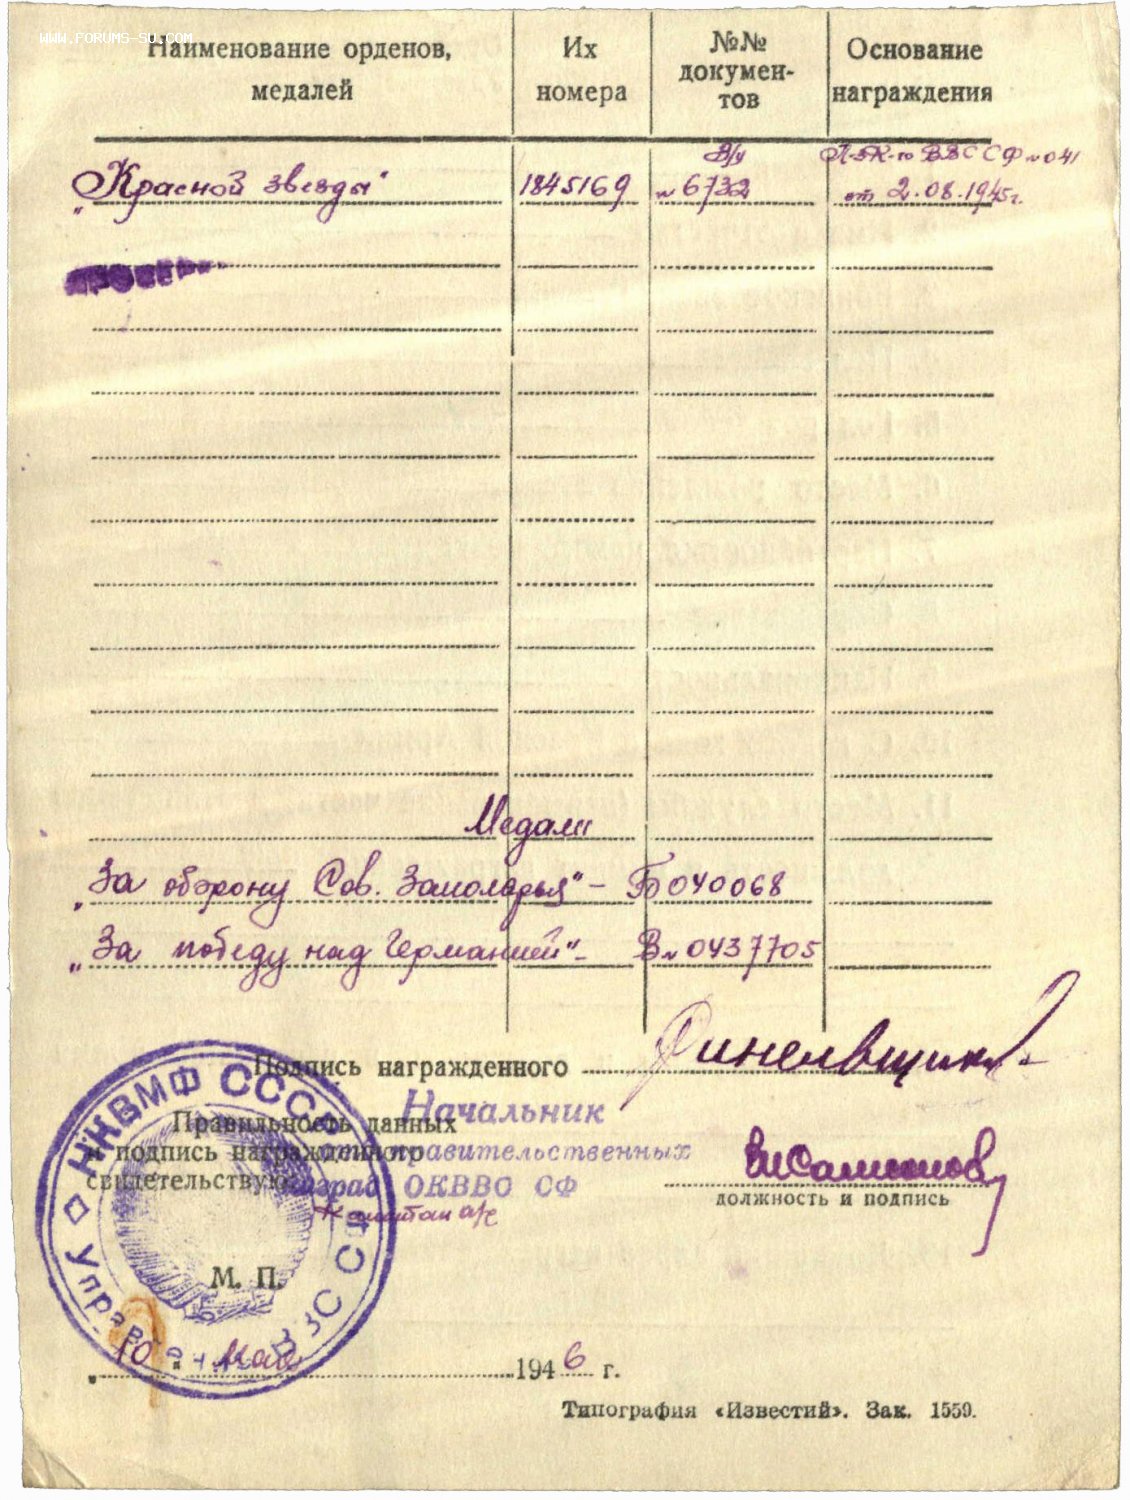 www.forums-su.com
Наименование орденов, медалей
Их номера
№№ докумен-тов
Основание награждения
„Красной звезды" 1845169 В/у № 6732 П-з К-го ВВС СФ № 041 от 2.08.1945г.
Медали
„За оборону Сов. Заполярья" – Б 040068
„За победу над Германией" – В № 0437705
Подпись награжденного
Правильность данных
и подпись награжденного
свидетельствую
Начальник
правительственных
наград ОКВВС СФ
Капитан а/с
должность и подпись
М. П.
НКВМФ СССР
Управление ВВС СФ
„10" мая 1946 г.
Типография «Известий». Зак. 1559.